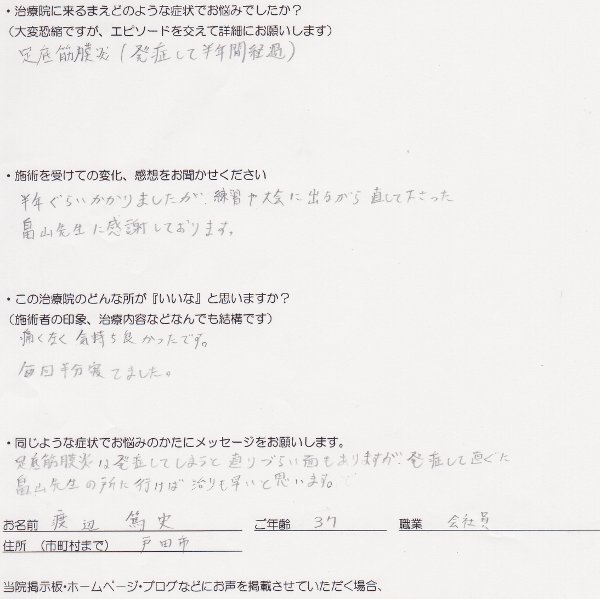 ・治療院に来るまえどのような症状でお悩みでしたか？
（大変恐縮ですが、エピソードを交えて詳細にお願いします）
足底筋膜炎（発症して半年間経過）
・施術を受けての変化、感想をお聞かせください
半年ぐらいかかりましたが、練習や大会に出ながら直して下さった
畠山先生に感謝しております。
・この治療院のどんな所が『いいな』と思いますか？
（施術者の印象、治療内容などなんでも結構です）
痛くなく気持ち良かったです。
毎回半分寝てました。
・同じような症状でお悩みのかたにメッセージをお願いします。
足底筋膜炎は発症してしまうと直りづらい面もありますが、発症して直ぐに
畠山先生の所に行けば治りも早いと思います。
お名前 渡辺 篤史 ご年齢 37 職業 会社員
住所 （市町村まで） 戸田市
当院掲示板・ホームページ・ブログなどにお声を掲載させていただく場合、